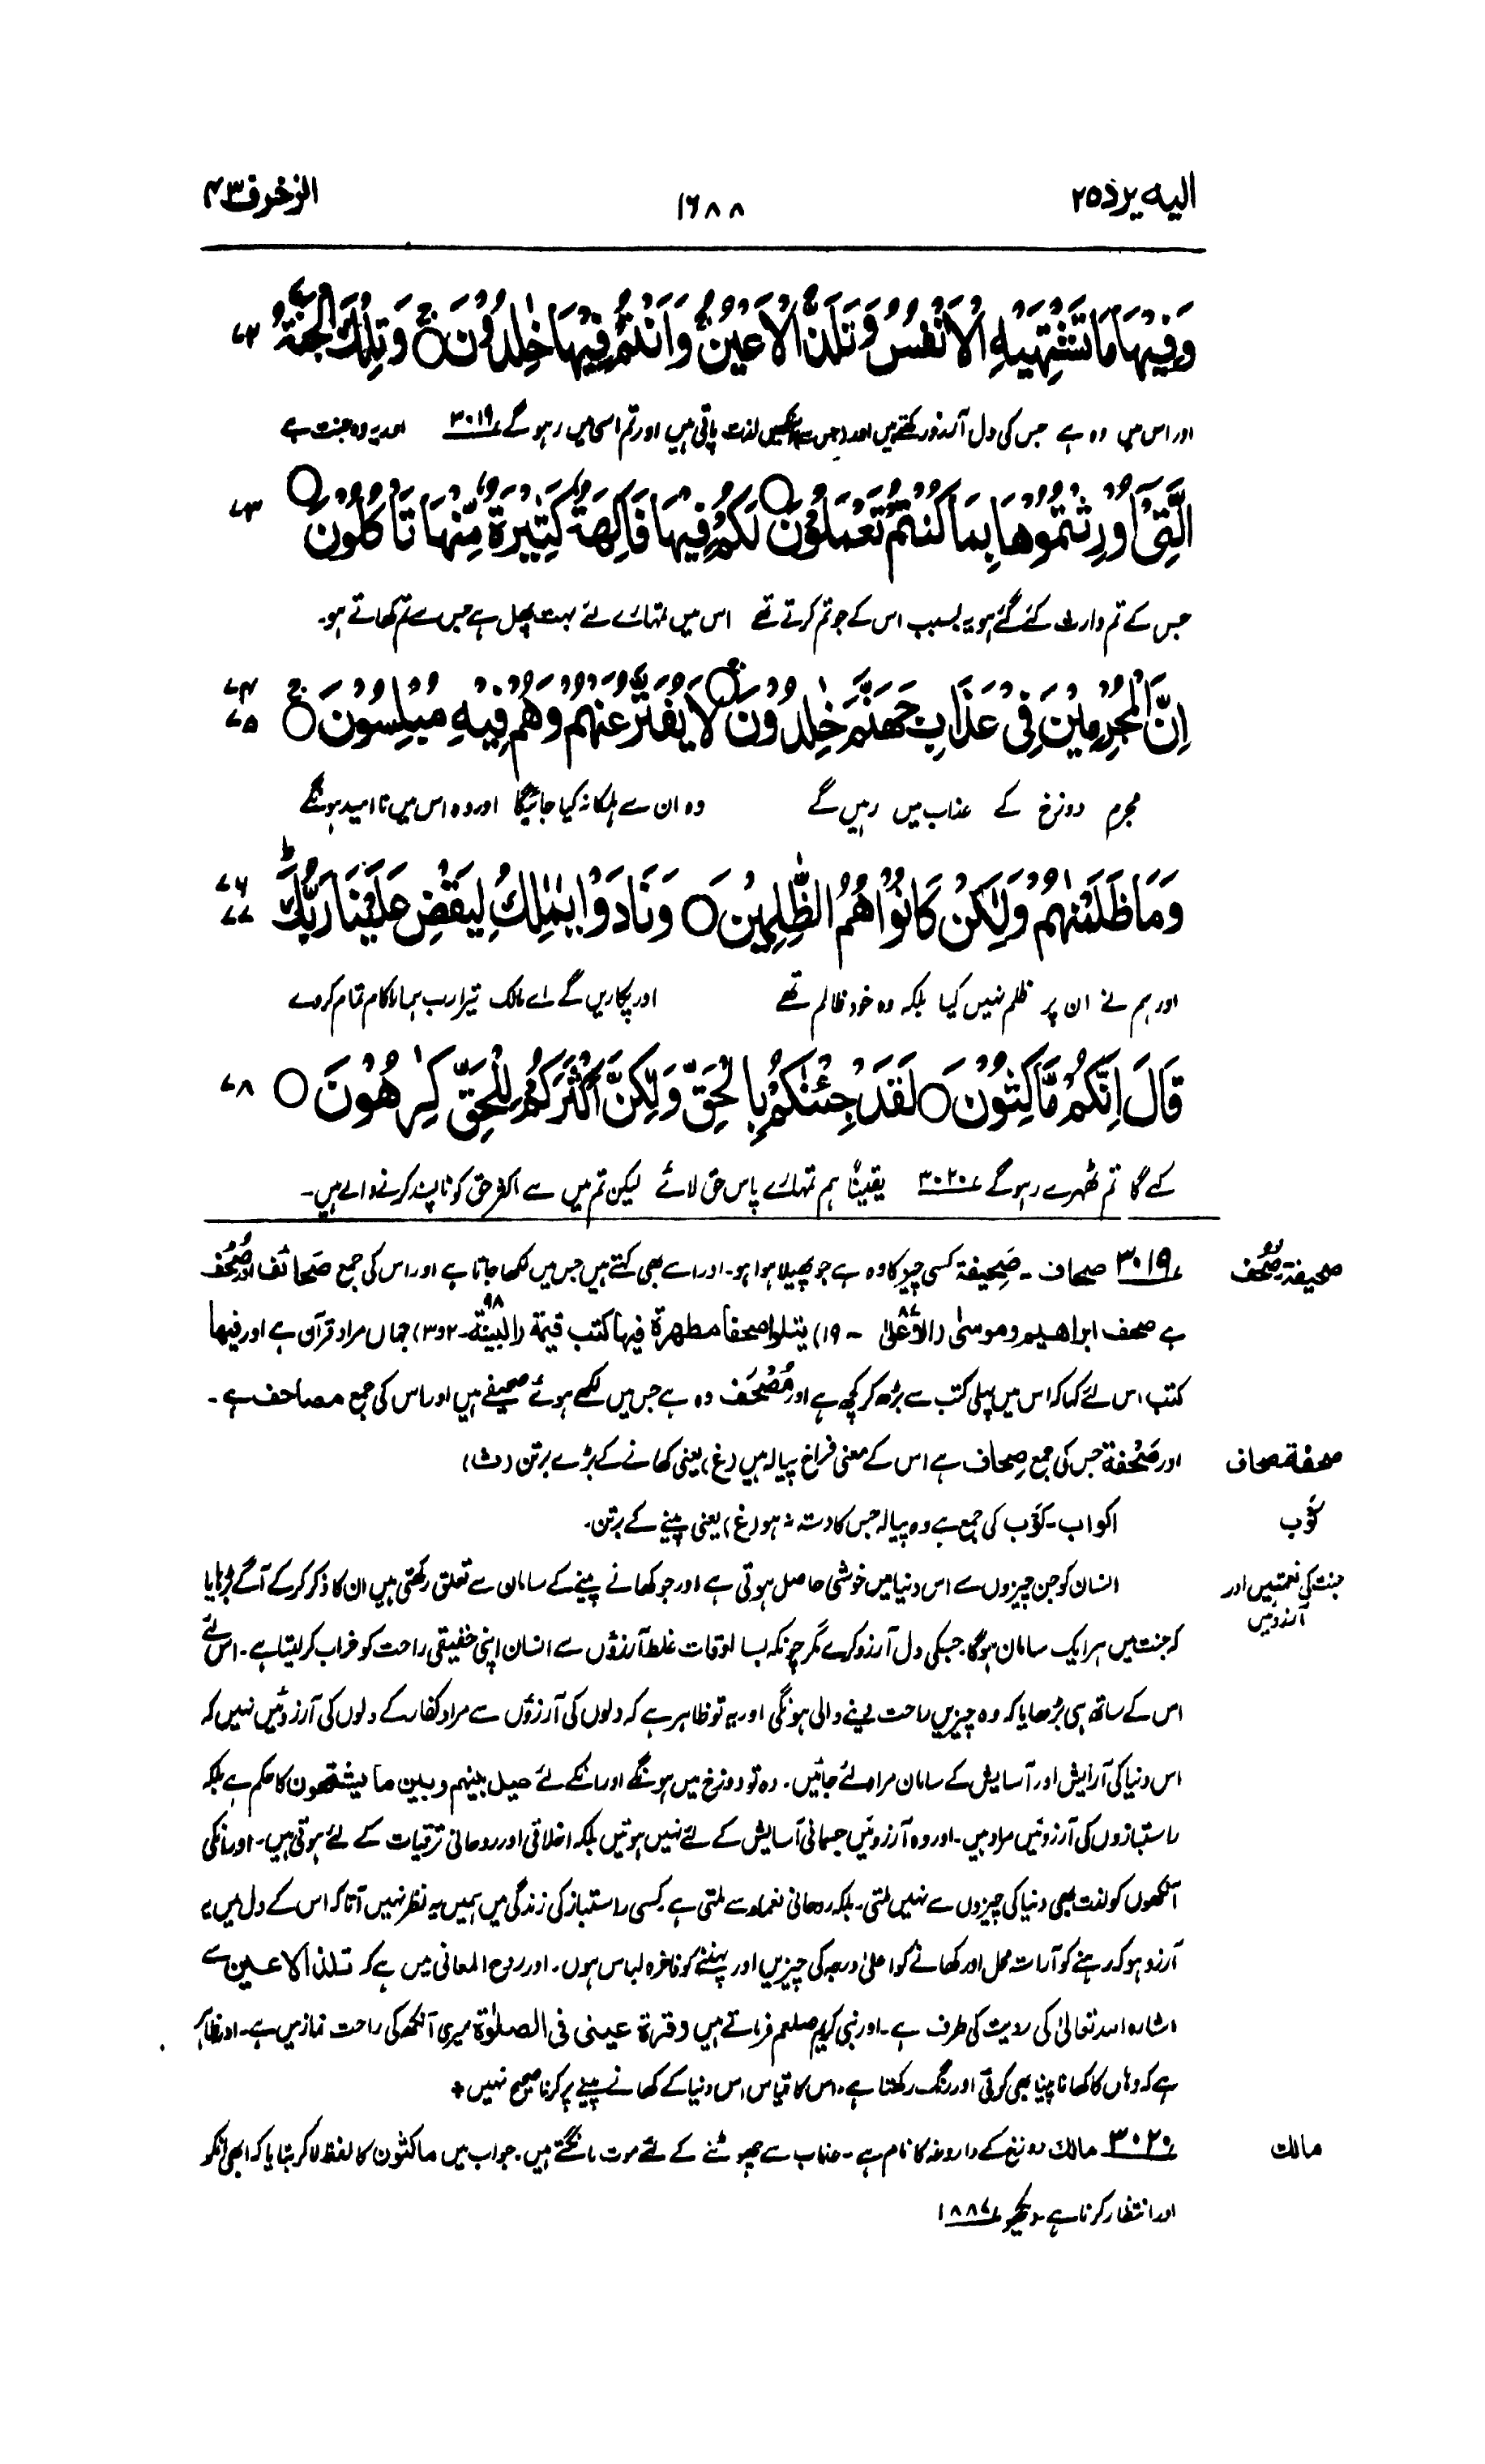 الیہ یرد ۲۵
۱۶۸۸
الزخرف ۴۳
وَفِيْهَا مَا تَشْتَهِيْهِ الْاَنْفُسُ وَتَلَذُّ الْاَعْيُنُ ۚ وَاَنْتُمْ فِيْهَا خٰلِدُوْنَ ۚ وَتِلْكَ الْجَنَّةُ
۷۲
اور اس میں وہ ہے جس کی دل آرزو رکھتے ہیں اور (جس سے) آنکھیں لذت پاتی ہیں اور تم اسی میں رہو گے ۳۰۱۹ اور یہ وہ جنت ہے
الَّتِيْٓ اُوْرِثْتُمُوْهَا بِمَا كُنْتُمْ تَعْمَلُوْنَ ○ لَكُمْ فِيْهَا فَاكِهَةٌ كَثِيْرَةٌ مِّنْهَا تَاْكُلُوْنَ ○
۷۳
جس کے تم وارث کئے گئے ہو یہ بسبب اس کے جو تم کرتے تھے اس میں تمہارے لئے بہت پھل ہے جس سے تم کھاتے ہو۔
اِنَّ الْمُجْرِمِيْنَ فِيْ عَذَابِ جَهَنَّمَ خٰلِدُوْنَ ۚ لَا يُفَتَّرُ عَنْهُمْ وَهُمْ فِيْهِ مُبْلِسُوْنَ ۚ
۷۴
۷۵
مجرم دوزخ کے عذاب میں رہیں گے وہ ان سے ہلکا نہ کیا جائیگا اور وہ اس میں نا امید ہونگے
وَمَا ظَلَمْنٰهُمْ وَلٰكِنْ كَانُوْا هُمُ الظّٰلِمِيْنَ ○ وَنَادَوْا يٰمٰلِكُ لِيَقْضِ عَلَيْنَا رَبُّكَ ؕ
۷۶
۷۷
اور ہم نے ان پر ظلم نہیں کیا بلکہ وہ خود ظالم تھے اور پکاریں گے اے مالک تیرا رب ہمارا کام تمام کردے
قَالَ اِنَّكُمْ مّٰكِثُوْنَ ○ لَقَدْ جِئْنٰكُمْ بِالْحَقِّ وَلٰكِنَّ اَكْثَرَكُمْ لِلْحَقِّ كٰرِهُوْنَ ○
۷۸
کہے گا تم ٹھہرے رہو گے ۳۰۲۰ یقیناً ہم تمہارے پاس حق لائے لیکن تم میں سے اکثر حق کو ناپسند کرنے والے ہیں۔
صحیفۃ۔ صُحُف
۳۰۱۹ صحاف۔ صَحِیفۃ کسی چیز کا وہ ہے جو پھیلا ہوا ہو۔ اور اسے بھی کہتے ہیں جس میں لکھا جاتا ہے اور اس کی جمع صَحائف اور صُحُف
ہے صحف ابراھیم وموسیٰ (الاَعلیٰ ۸۷۔۱۹) یتلوا صحفا مطہرۃ فیہا کتب قیمۃ (البینۃ ۹۸۔ ۲و۳) جہاں مراد قرآن ہے اور فیہا
کتب اس لئے کہا کہ اس میں پہلی کتب سے بڑھ کر کچھ ہے اور مُصْحَف وہ ہے جس میں لکھے ہوئے صحیفے ہیں اور اس کی جمع مصاحف ہے۔
صحفۃ صحاف
اور صَحْفۃ جس کی جمع صِحاف ہے اس کے معنی فراخ پیالہ ہیں (غ) یعنی کھانے کے بڑے برتن (ث)
کُوب
اکواب۔ کُوب کی جمع ہے وہ پیالہ جس کا دستہ نہ ہو (غ) یعنی پینے کے برتن۔
جنت کی نعمتیں اور آرزوئیں
انسان کو جن چیزوں سے اس دنیا میں خوشی حاصل ہوتی ہے اور جو کھانے پینے کے سامان سے تعلق رکھتی ہیں ان کا ذکر کرکے آگے بڑھایا
کہ جنت میں ہر ایک سامان ہوگا۔ جسکی دل آرزو کرے مگر چونکہ بسا اوقات غلط آرزؤں سے انسان اپنی حقیقی راحت کو خراب کر لیتا ہے۔ اس لئے
اس کے ساتھ ہی بڑھایا کہ وہ چیزیں راحت دینے والی ہونگی اور یہ تو ظاہر ہے کہ دلوں کی آرزؤں سے مراد کفار کے دلوں کی آرزوئیں نہیں کہ
اس دنیا کی آرایش اور آسایش کے سامان مراد لئے جائیں۔ وہ تو دوزخ میں ہونگے اور انکے لئے حیل بینہم وبین ما یشتھون کا حکم ہے بلکہ
راستبازوں کی آرزوئیں مراد ہیں۔ اور وہ آرزوئیں جسمانی آسایش کے لئے نہیں ہوتیں بلکہ اخلاقی اور روحانی ترقیات کے لئے ہوتی ہیں۔ اور انکی
آنکھوں کو لذت بھی دنیا کی چیزوں سے نہیں ملتی۔ بلکہ روحانی نعماء سے ملتی ہے۔ کسی راستباز کی زندگی میں ہمیں یہ نظر نہیں آتا کہ اس کے دل میں یہ
آرزو ہو کہ رہنے کو آراستہ محل اور کھانے کو اعلیٰ درجہ کی چیزیں اور پہننے کو فاخرہ لباس ہوں۔ اور روح المعانی میں ہے کہ تلذ الاعین سے
اشارہ اللہ تعالیٰ کی رویت کی طرف ہے۔ اور نبی کریم صلعم فرماتے ہیں وقرۃ عینی فی الصلوٰۃ میری آنکھ کی راحت نماز میں ہے۔ اور ظاہر
ہے کہ وہاں کا کھانا پینا بھی کوئی اور رنگ رکھتا ہے۔ اس کا قیاس اس دنیا کے کھانے پینے پر کرنا صحیح نہیں +
مالک
۳۰۲۰ مالک دوزخ کے داروغہ کا نام ہے۔ عذاب سے چھوٹنے کے لئے موت مانگتے ہیں۔ جواب میں ماکثون کا لفظ لا کر بتایا کہ ابھی انکو
اور انتظار کرنا ہے۔ دیکھو ۱۸۸۷